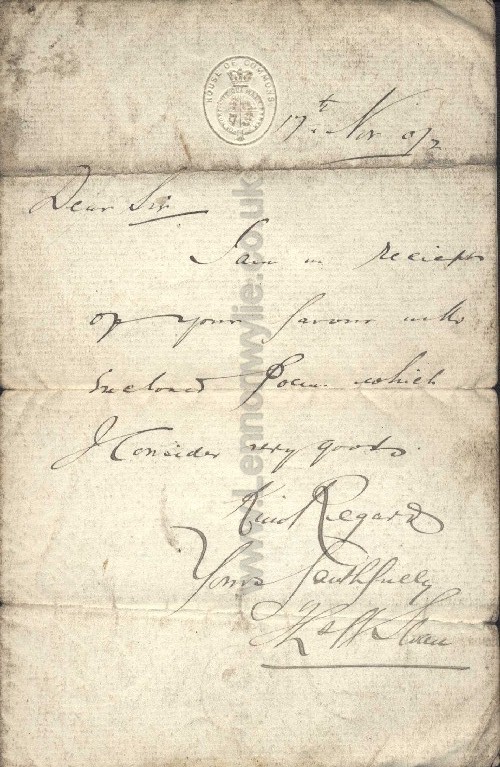 HOUSE OF COMMONS
17th Nov 07
Dear Sir
I am in reciept
of your favour with
inclosed Poem which
I Consider very good.
Kind Regards
Yours faithfully
Sloan
www.Lennonwylie.co.uk